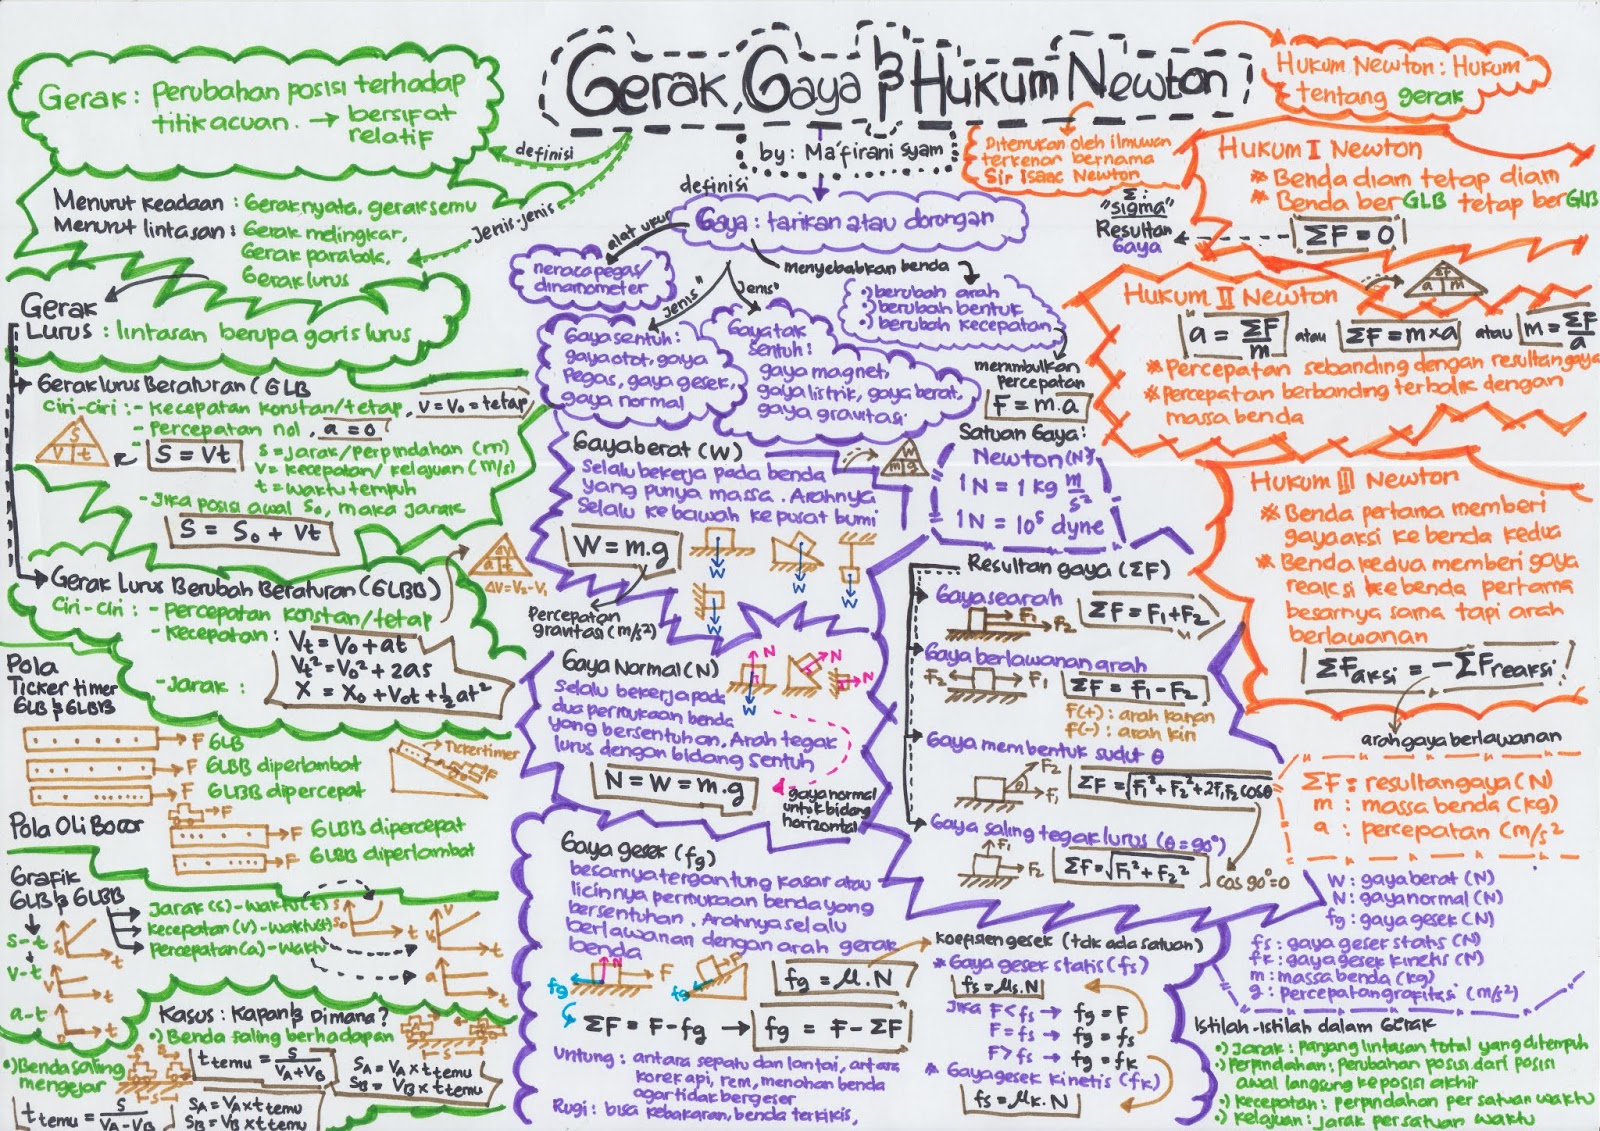 Gerak, Gaya & Hukum Newton
by: Ma'firani Syam
Gerak : Perubahan posisi terhadap
titik acuan. → bersifat
relatif
definisi
Jenis-jenis
Menurut keadaan : Gerak nyata, gerak semu
Menurut lintasan : Gerak melingkar,
Gerak parabola,
Gerak lurus
Gerak
Lurus : lintasan berupa garis lurus
Gerak Lurus Beraturan (GLB
Ciri-ciri : - Kecepatan konstan/tetap, v = v₀ = tetap
- Percepatan nol, a = 0
S
v t
S = vt
S = Jarak/Perpindahan (m)
V = kecepatan/kelajuan (m/s)
t = waktu tempuh
- Jika posisi awal S₀, maka Jarak
S = S₀ + vt
Gerak Lurus Berubah Beraturan (GLBB)
ΔV
a t
ΔV = V₂ - V₁
Ciri-ciri : - Percepatan konstan/tetap
- Kecepatan : Vt = V₀ + at
Vt² = V₀² + 2as
- Jarak : X = X₀ + V₀t + ½at²
Pola
Ticker timer
GLB & GLBB
F GLB
F GLBB diperlambat
F GLBB dipercepat
Ticker timer
Pola Oli Bocor
F
F GLBB dipercepat
F GLBB diperlambat
Grafik
GLB & GLBB
Jarak (s) - Waktu (t)
Kecepatan (v) - Waktu (t)
Percepatan (a) - Waktu
s-t
v-t
a-t
Kasus : Kapan & Dimana?
• Benda saling berhadapan
t temu = S/(VA+VB)
SA = VA x t temu
SB = VB x t temu
•) Benda saling
mengejar
t temu = S/(VA-VB)
SA = VA x t temu
SB = VB x t temu
definisi
Gaya : tarikan atau dorongan
alat ukur
neraca pegas/
dinamometer
menyebabkan benda
•) berubah arah
•) berubah bentuk
•) berubah kecepatan
menimbulkan
percepatan
F = m.a
Jenis²
Gaya sentuh :
gaya otot, gaya
pegas, gaya gesek,
gaya normal
Jenis²
Gaya tak
sentuh :
gaya magnet,
gaya listrik, gaya berat,
gaya gravitasi.
Satuan Gaya :
Newton (N)
1 N = 1 kg m/s²
1 N = 10⁵ dyne
Gaya berat (W)
Selalu bekerja pada benda
yang punya massa. Arahnya
Selalu ke bawah ke pusat bumi
W
m g
W = m.g
W W W W
Percepatan
gravitasi (m/s²)
Gaya Normal (N)
Selalu bekerja pada
dua permukaan benda
yang bersentuhan, Arah tegak
lurus dengan bidang sentuh
N N N
W
N = W = m.g
gaya normal
untuk bidang
horizontal
Gaya gesek (fg)
besarnya tergantung kasar atau
licinnya permukaan benda yang
bersentuhan. Arahnya selalu
berlawanan dengan arah gerak
benda
N F fg F fg
fg = μ.N
ΣF = F - fg → fg = F - ΣF
Untung : antara sepatu dan lantai, antara
korek api, rem, menahan benda
agar tidak bergeser
Rugi : bisa kebakaran, benda terkikis,
koefisien gesek (tdk ada satuan)
* Gaya gesek statis (fs)
fs = μs.N
Jika F < fs → fg = F
F = fs → fg = fs
F > fs → fg = fk
* Gaya gesek kinetis (fk)
fs = μk.N
Resultan gaya (ΣF)
Gaya searah
F₁ F₂
ΣF = F₁ + F₂
Gaya berlawanan arah
F₂ F₁
ΣF = F₁ - F₂
F(+) : arah kanan
F(-) : arah kiri
Gaya membentuk sudut θ
F₂ θ F₁
ΣF = √F₁² + F₂² + 2F₁F₂ cosθ
Gaya saling tegak lurus (θ = 90°)
F₁ F₂
ΣF = √F₁² + F₂²
cos 90° = 0
Hukum Newton : Hukum
tentang gerak
Ditemukan oleh ilmuwan
terkenar bernama
Sir Isaac Newton
Hukum I Newton
* Benda diam tetap diam
* Benda ber GLB tetap ber GLB
ΣF = 0
Σ:
"sigma"
Resultan
Gaya
Hukum II Newton
ΣF
a m
a = ΣF/m atau ΣF = m x a atau m = ΣF/a
* Percepatan sebanding dengan resultan gaya
* Percepatan berbanding terbalik dengan
massa benda
Hukum III Newton
* Benda pertama memberi
gaya aksi ke benda kedua
* Benda kedua memberi gaya
reaksi ke benda pertama
besarnya sama tapi arah
berlawanan
ΣFaksi = -ΣFreaksi!
arah gaya berlawanan
ΣF : resultan gaya (N)
m : massa benda (kg)
a : percepatan (m/s²
W : gaya berat (N)
N : gaya normal (N)
fg : gaya gesek (N)
fs : gaya gesek statis (N)
fk : gaya gesek kinetis (N)
m : massa benda (kg)
g : percepatan grafitasi (m/s²)
Istilah-istilah dalam Gerak
•) Jarak : Panjang lintasan total yang ditempuh
•) Perpindahan : Perubahan posisi dari posisi
awal langsung ke posisi akhir
•) Kecepatan : perpindahan per satuan waktu
•) Kelajuan : Jarak per satuan waktu